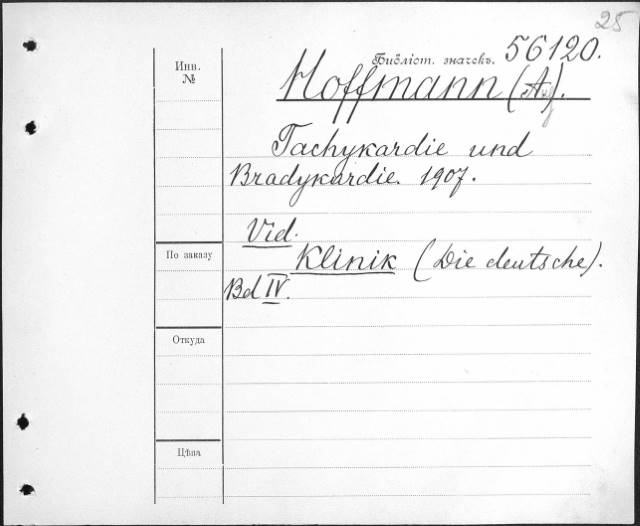 25
Библіот. значекъ. 56120.
Инв.
№
Hoffmann (A).
Tachykardie und
Bradykardie. 1907.
Vid.
По заказу
Klinik (Die deutsche).
Bd IV.
Откуда
Цѣна